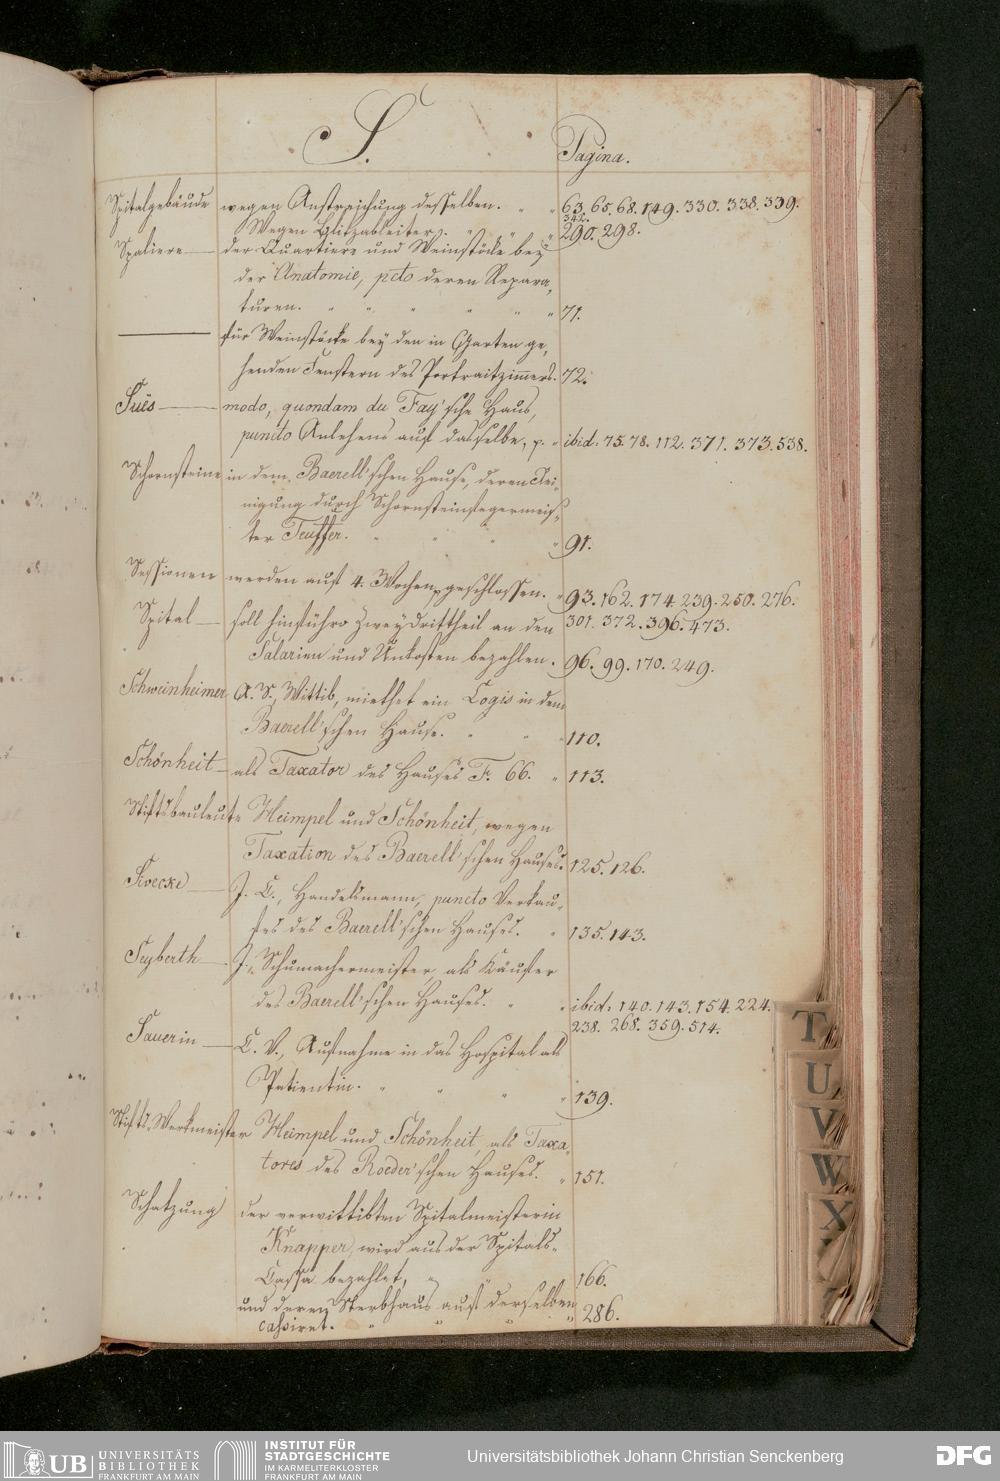 S.
Pagina.
Spitalgebäude wegen Anstreichung desselben. " " 63. 65. 68. 149. 330. 338. 339.
342.
Wegen Blitzableiter. " " " 290. 298.
Spaliere — der Quartiere und Weinstöcke bey
der Anatomie, pcto deren Repara-
turen. " " " " " " 71.
— für Weinstöcke bey den in Garten ge-
henden Fenstern des Portraitzimmers. 72.
Süês — modo, quondam du Fay'sche Haus,
puncto Anlehens auf dasselbe, p. " ibid: 75. 78. 112. 371. 373. 538.
Schornsteine in dem Baerell'schen Hause, deren Rei-
nigung durch Schornsteinfegermeis-
ter Teuffer. " " " " 91.
Sessionen werden auf 4. Wochen geschlossen. " 93. 162. 174. 239. 250. 276.
301. 372. 396. 473.
Spital — soll hinführo zwey Drittheil an den
Salarien und Unkosten bezahlen. 96. 99. 170. 249.
Schweinheimer A. S., Wittib, miethet ein Logis in dem
Baerell'schen Hause. " " " 110.
Schönheit — als Taxator des Hauses F. 66. " 113.
Stiftsbauleute Heimpel und Schönheit, wegen
Taxation des Baerell'schen Hauses. 125. 126.
Sivecke — J. C., Handelsmann, puncto Verkau-
fes des Baerell'schen Hauses. " 135. 143.
Seyberth — J., Schumachermeister als Käufer
des Baerell'schen Hauses. " " ibid: 140. 143. 154. 224.
238. 268. 359. 514.
Sauerin — C. V., Aufnahme in das Hospital als
Patientin. " " " " 139.
Stifts-Werkmeister Heimpel und Schönheit, als Taxa-
tores des Roeder'schen Hauses. " 151.
Schatzung der verwittibten Spitalmeisterin
Knapper, wird aus der Spitals-
Cassa bezahlet, " 166.
und deren Sterbhaus auf derselben
cassiret. " " " " 286.
T
U
V
W
X
UB UNIVERSITÄTS
BIBLIOTHEK
FRANKFURT AM MAIN
INSTITUT FÜR
STADTGESCHICHTE
IM KARMELITERKLOSTER
FRANKFURT AM MAIN
Universitätsbibliothek Johann Christian Senckenberg
DFG